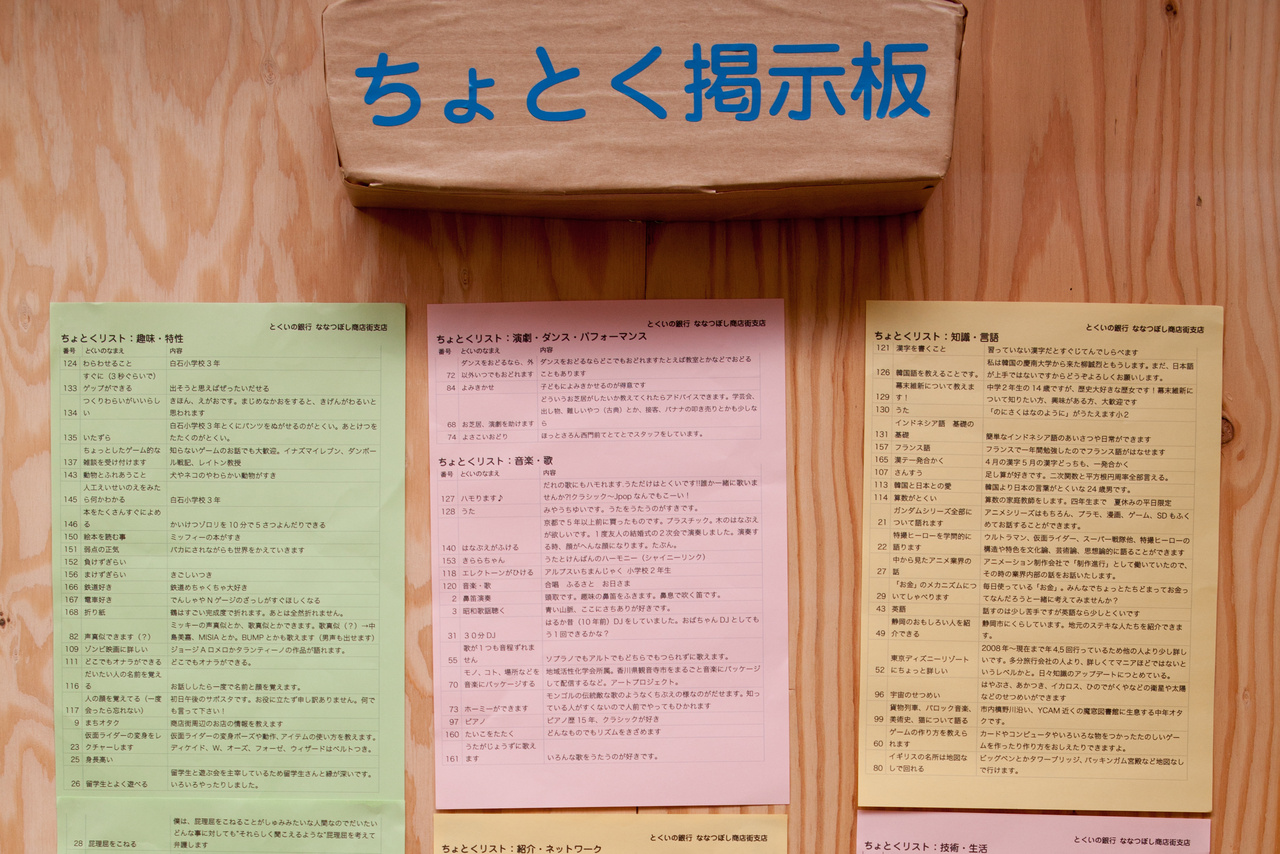 ちょとく掲示板
とくいの銀行 ななつぼし商店街支店
ちょとくリスト：趣味・特性
番号 とくいのなまえ 内容
124 わらわせること 白石小学校３年
すぐに（３秒ぐらいで）
133 ゲップができる 出そうと思えばぜったいだせる
つくりわらいがいいらし きほん、えがおです。まじめなかおをすると、きげんがわるいと
134 い 思われます
白石小学校３年とくにパンツをぬがせるのがとくい。あとけつを
135 いたずら たたくのがとくい。
ちょっとしたゲーム的な 知らないゲームのお話でも大歓迎。イナズマイレブン、ダンボー
137 雑談を受け付けます ル戦記、レイトン教授
143 動物とふれあうこと 犬やネコのやわらかい動物がすき
人工えいせいのえをみた
145 ら何かわかる 白石小学校３年
本をたくさんすぐによめ
146 る かいけつゾロリを10分で５さつよんだりできる
150 絵本を読む事 ミッフィーの本がすき
151 弱点の正気 バカにされながらも世界をかえていきます
152 負けずぎらい
156 まけずぎらい きごしいつき
166 鉄道好き 鉄道めちゃくちゃ大好き
167 電車好き でんしゃやNゲージのざっしがすすほしくなる
168 折り紙 鶴はすごい完成度で折れます。あとは全然折れません。
ミッキーの声真似とか、歌真似とかできます。歌真似（？）→中
82 声真似できます（？） 島美嘉、MISIAとか。BUMPとかも歌えます（男声も出せます）
109 ゾンビ映画に詳しい ジョージAロメロかタランティーノの作品が語れます。
111 どこでもオナラができる どこでもオナラができる。
だいたい人の名前を覚え
116 る お話ししたら一度で名前と顔を覚えます。
人の顔を覚えてる（一度 初日午後のサポスタです。お役に立たず申し訳ありません。何で
117 会ったら忘れない） も言って下さい！
9 まちオタク 商店街周辺のお店の情報を教えます
仮面ライダーの変身をレ 仮面ライダーの変身ポーズや動作、アイテムの使い方を教えます。
23 クチャーします ディケイド、W、オーズ、フォーゼ、ウィザードはベルトつき。
25 身長高い
留学生と遊ぶ会を主宰しているため留学生さんと縁が深いです。
26 留学生とよく遊べる いろいろやったりしました。
僕は、屁理屈をこねることがしゅみみたいな人間なのでだいたい
どんな事に対しても“それらしく聞こえるような”屁理屈を考えて
28 屁理屈をこねる 弁護します
とくいの銀行 ななつぼし商店街支店
ちょとくリスト：演劇・ダンス・パフォーマンス
番号 とくいのなまえ 内容
ダンスをおどるなら、外 ダンスをおどるならどこでもおどれますたとえば教室とかなどでおどる
72 以外いつでもおどれます こともあります
84 よみきかせ 子どもによみきかせるのが得意です
どういうお芝居がしたいか教えてくれたらアドバイスできます。学芸会、
出し物、難しいやつ（古典）とか、接客、バナナの叩き売りとかも少しな
68 お芝居、演劇を助けます ら
74 よさこいおどり ほっとさろん西門前てとてとでスタッフをしています。
ちょとくリスト：音楽・歌
番号 とくいのなまえ 内容
だれの歌にもハモれます。うただけはとくいです!!誰か一緒に歌いま
127 ハモります♪ せんか?!クラシック〜Jpopなんでもこーい！
128 うた みやうちゆいです。うたをうたうのがすきです。
京都で５年以上前に買ったものです。プラスチック。木のはなぶえ
が欲しいです。１度友人の結婚式の２次会で演奏しました。演奏す
140 はなぶえがふける る時、顔がへんな顔になります。たぶん。
153 きららちゃん たけとんぱけんのハーモニー（シャイニーリンク）
118 エレクトーンがひける アルプスいちまんじゃく 小学校２年生
120 音楽・歌 合唱 ふるさと お日さま
2 鼻笛演奏 頭取です。趣味の鼻笛をふきます。鼻息で吹く笛です。
3 昭和歌謡聴く 青い山脈、ここにさちありが好きです。
はるか昔（10年前）DJをしていました。おばちゃんDJとしても
31 ３０分DJ う１回できるかな？
歌が１つも音程ずれま
55 せん ソプラノでもアルトでもどちらでもつられずに歌えます。
モノ、コト、場所などを 地域活性化学会所属。香川県観音寺市をまるごと音楽にパッケージ
70 音楽にパッケージする して配信するなど。アートプロジェクト。
モンゴルの伝統敵な歌のようなくちぶえの様なのがだせます。知っ
73 ホーミーができます ている人がすくないので人前でやってもひかれます
97 ピアノ ピアノ歴15年、クラシックが好き
160 たいこをたたく どんなものでもリズムをきざめます
うたがじょうずに歌え
161 ます いろんな歌をうたうのが好きです。
とくいの銀行 ななつぼし商店街支店
ちょとくリスト：紹介・ネットワーク
とくいの銀行 ななつぼし商店街支店
ちょとくリスト：知識・言語
番号 とくいのなまえ 内容
121 漢字を書くこと 習っていない漢字だとすぐじてんでしらべます
私は韓国の慶南大学から来た柳誠烈ともうします。まだ、日本語
126 韓国語を教えることです。 が上手ではないですからどうぞよろしくお願いします。
幕末維新について教えま 中学２年生の14歳ですが、歴史大好きな歴女です！幕末維新に
129 す！ ついて知りたい方、興味がある方、大歓迎です
130 うた 「のにさくはなのように」がうたえます小２
インドネシア語 基礎の
131 基礎 簡単なインドネシア語のあいさつや日常ができます
157 フランス語 フランスで一年間勉強したのでフランス語がはなせます
165 漢テ一発合かく ４月の漢字５月の漢字どっちも、一発合かく
107 さんすう 足し算が好きです。二次関数と平方根円周率全部言える。
113 韓国と日本との愛 韓国より日本の言葉がとくいな24歳男です。
114 算数がとくい 算数の家庭教師をします。四年生まで 夏休みの平日限定
ガンダムシリーズ全部に アニメシリーズはもちろん、プラモ、漫画、ゲーム、SDもふく
21 ついて語れます めてお話することができます。
特撮ヒーローを学問的に ウルトラマン、仮面ライダー、スーパー戦隊他、特撮ヒーローの
22 語ります 構造や特色を文化論、芸術論、思想論的に語ることができます
中から見たアニメ業界の アニメーション制作会社で「制作進行」として働いていたので、
27 話 その時の業界内部の話をお話いたします。
「お金」のメカニズムにつ 毎日使っている「お金」。みんなでちょっとたちどまってお金っ
29 いてしゃべります てなんだろうと一緒に考えてみませんか？
43 英語 話すのは少し苦手ですが英語なら少しとくいです
静岡のおもしろい人を紹 静岡市にくらしています。地元のステキな人たちを紹介できま
49 介できる す。
2008年〜現在まで年4,5回行っているため他の人より少し詳し
東京ディズニーリゾート いです。多分旅行会社の人より、詳しくてマニアほどではないと
52 にちょっと詳しい いうレベルかと。日々知識のアップデートにつとめている。
はやぶさ、あかつき、イカロス、ひのでがくやなどの衛星や太陽
96 宇宙のせつめい などのせつめいができます
貨物列車、バロック音楽、 市内横野川沿い、YCAM近くの魔窓図書館に生息する中年オタ
99 美術史、猫について語る クです。
ゲームの作り方を教えら カードやコンピュータやいろいろな物をつかったたのしいゲー
60 れます ムを作ったり作り方をおしえたりできますよ。
イギリスの名所は地図な ビッグベンとかタワーブリッジ、バッキンガム宮殿など地図なし
80 しで回れる で行けます。
とくいの銀行 ななつぼし商店街支店
ちょとくリスト：技術・生活